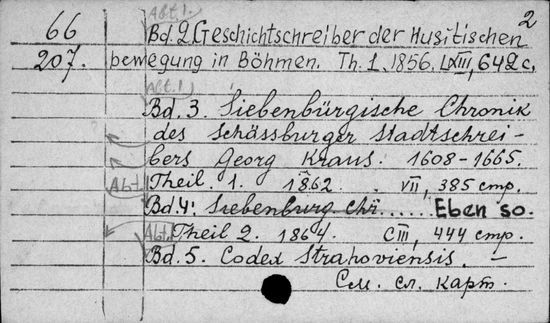 2
Abt. 1.
66 Bd. 2. Geschichtschreiber der Husitischen
207. bewegung in Böhmen. Th. 1. 1856. LXIII, 642 c.
Abt. 1)
Bd. 3. Siebenbürgische Chronik
des Schässburger Stadtschrei-
bers Georg Kraus. 1608-1665.
Abt. Theil. 1. 1862. VII, 385 стр.
Bd. 4: Siebenburg. Chr...... Eben so.
Abt. Theil 2. 1864. CIII, 444 стр.
Bd. 5. Codex Strahoviensis. —
См. сл. карт.